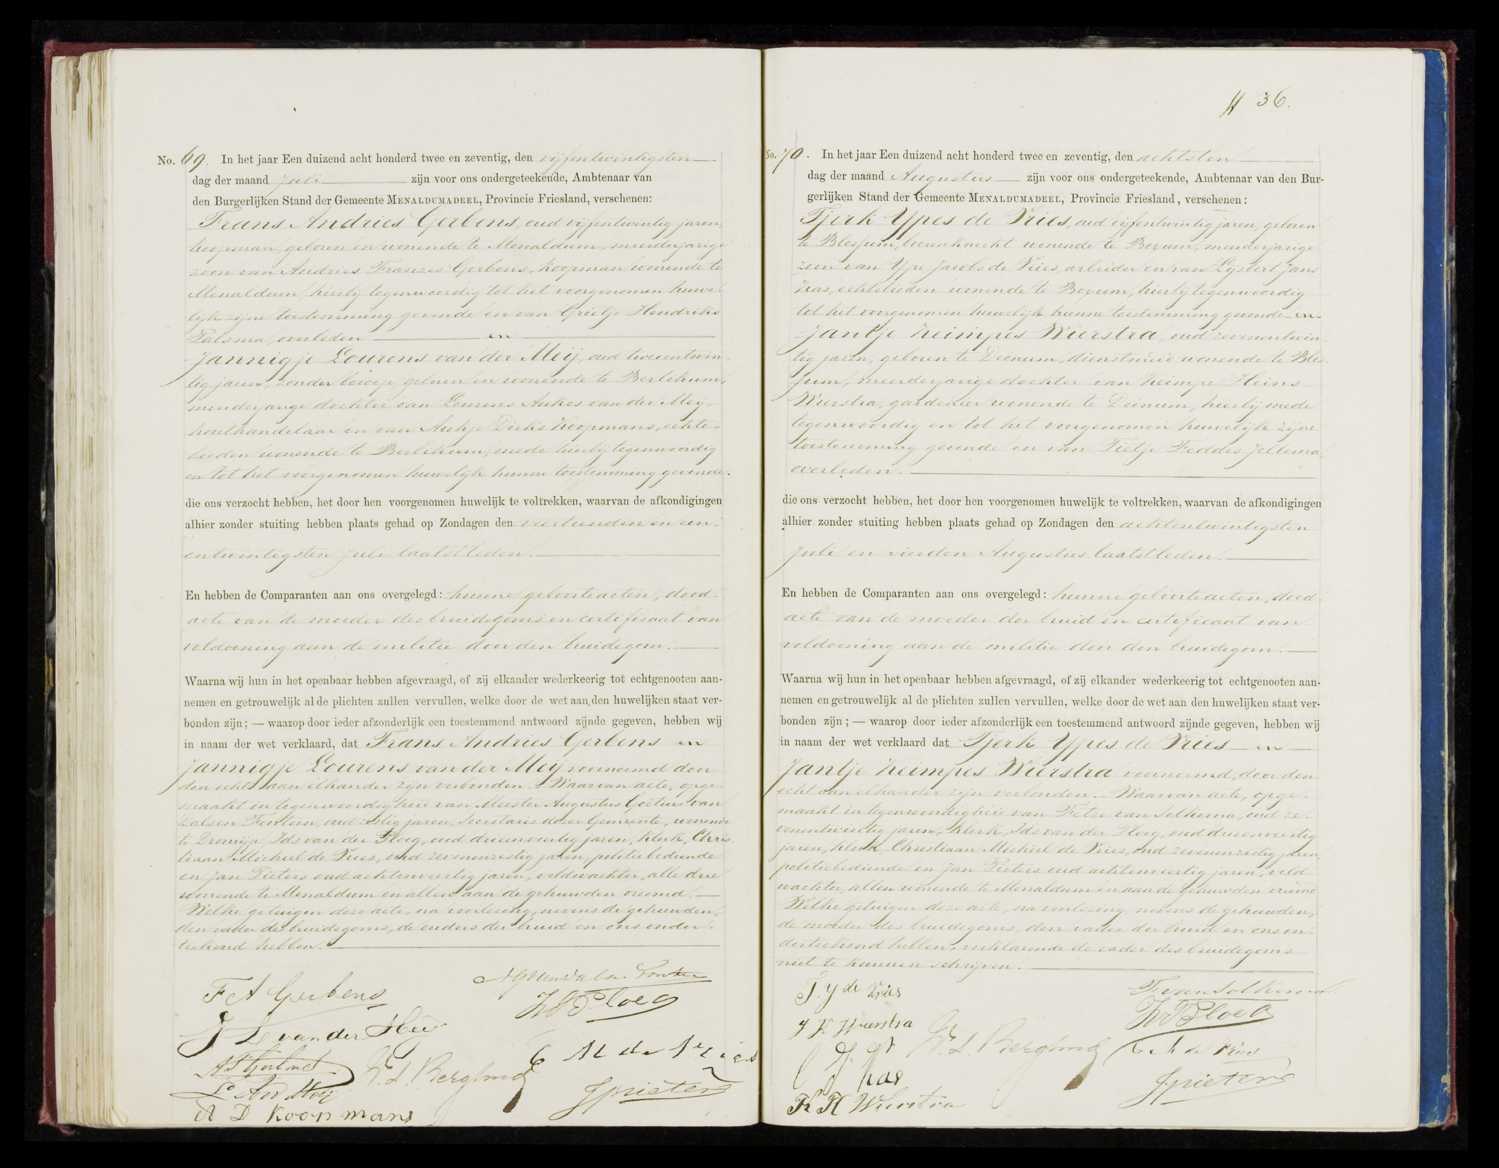 No. 69. In het jaar Een duizend acht honderd twee en zeventig, den vijfentwintigsten
dag der maand Juli zijn voor ons ondergeteekende, Ambtenaar van
den Burgerlijken Stand der Gemeente MENALDUMADEEL, Provincie Friesland, verschenen:
Frans Andries Gerbens, oud vijfentwintig jaren,
koopman, geboren en wonende te Menaldum, meerderjarige
zoon van Andries Franzes Gerbens, koopman wonende te
Menaldum, hierbij tegenwoordig tot het voorgenomen huwe-
lijk zijne toestemming gevende en van Grietje Hendriks
Palsma, overleden en
Jannigje Lourens van der Meij, oud tweeentwin-
tig jaren, zonder beroep, geboren en wonende te Berlikum,
minderjarige dochter van Lourens Ankes van der Meij
houthandelaar en van Aukje Dirks Koopmans, echte-
lieden wonende te Berlikum, mede hierbij tegenwoordig
en tot het voorgenomen huwelijk hunne toestemming gevende.
die ons verzocht hebben, het door hen voorgenomen huwelijk te voltrekken, waarvan de afkondigingen
alhier zonder stuiting hebben plaats gehad op Zondagen den veertienden en een-
entwintigsten Juli laatstleden.
En hebben de Comparanten aan ons overgelegd: hunne geboorteacten, dood-
acte van de moeder des bruidegoms en certificaat van
voldoening aan de militie door den bruidegom.
Waarna wij hun in het openbaar hebben afgevraagd, of zij elkander wederkeerig tot echtgenooten aan-
nemen en getrouwelijk al de plichten zullen vervullen, welke door de wet aan den huwelijken staat ver-
bonden zijn; — waarop door ieder afzonderlijk een toestemmend antwoord zijnde gegeven, hebben wij
in naam der wet verklaard, dat Frans Andries Gerbens en
Jannigje Lourens van der Meij voornoemd door
den echt aan elkander zijn verbonden. Waarvan acte, opge-
maakt in tegenwoordigheid van Meester Augustus Goetius van
Fontein, oud zestig jaren, Secretaris dezer Gemeente, wonende
te Dronrijp Ids van der Ploeg, oud drieenveertig jaren, klerk, Chris-
tiaan Michiel de Vries, oud zevenenzestig jaren, politiebediende
en Jan Pieters oud achtenveertig jaren, veldwachter, alle drie
wonende te Menaldum en allen aan de gehuwden vreemd.
Welke getuigen deze acte, na voorlezing, nevens de gehuwden,
den vader des bruidegoms, de ouders der bruid en ons onder-
teekend hebben.
F A Gerbens
J L van der Meij
L A vd Meij
A D Koopmans
W. L. Berghuis
C M de Vries
JPieters
№ 36.
No. 70. In het jaar Een duizend acht honderd twee en zeventig, den achtsten
dag der maand Augustus zijn voor ons ondergeteekende, Ambtenaar van den Bur-
gerlijken Stand der Gemeente MENALDUMADEEL, Provincie Friesland, verschenen:
Tjerk Ypes de Vries, oud vijfentwintig jaren, geboren
te Blessum, boerenknecht wonende te Boxum, meerderjarige
zoon van Ype Jacobs de Vries, arbeider en van Lijsbert Jans
Kas, echtelieden wonende te Boxum, hierbij tegenwoordig
tot het voorgenomen huwelijk hunne toestemming gevende en
Jantje Heimpes Wierstra, oud zevenentwin-
tig jaren, geboren te Deinum, dienstmeid wonende te Bles-
sum, meerderjarige dochter van Heimpe Heins
Wierstra, gardenier wonende te Deinum, hierbij mede
tegenwoordig en tot het voorgenomen huwelijk zijne
toestemming gevende en van Tietje Feddes Jeltema,
overleden.
die ons verzocht hebben, het door hen voorgenomen huwelijk te voltrekken, waarvan de afkondigingen
alhier zonder stuiting hebben plaats gehad op Zondagen den achtentwintigsten
Juli en vierden Augustus laatstleden.
En hebben de Comparanten aan ons overgelegd: hunne geboorteacten, dood-
acte van de moeder der bruid en certificaat van
voldoening aan de militie door den bruidegom.
Waarna wij hun in het openbaar hebben afgevraagd, of zij elkander wederkeerig tot echtgenooten aan-
nemen en getrouwelijk al de plichten zullen vervullen, welke door de wet aan den huwelijken staat ver-
bonden zijn; — waarop door ieder afzonderlijk een toestemmend antwoord zijnde gegeven, hebben wij
in naam der wet verklaard dat Tjerk Ypes de Vries en
Jantje Heimpes Wierstra voornoemd, door den
echt aan elkander zijn verbonden. Waarvan acte, opge-
maakt in tegenwoordigheid van Pieter van Solkema, oud ze-
venentwintig jaren, klerk, Ids van der Ploeg, oud drieenveertig
jaren, klerk, Christiaan Michiel de Vries, oud zevenenzestig jaren,
politiebediende en Jan Pieters oud achtenveertig jaren, veld-
wachter, allen wonende te Menaldum en aan de gehuwden vreemd
Welke getuigen deze acte, na voorlezing, nevens de gehuwden,
de moeder des bruidegoms, den vader der bruid en ons on-
derteekend hebben, verklarende de vader des bruidegoms
niet te kunnen schrijven.
T. Y de Vries
J H Wierstra
L J Kas
H H Wierstra
W. L. Berghuis
C M de Vries
JPieters